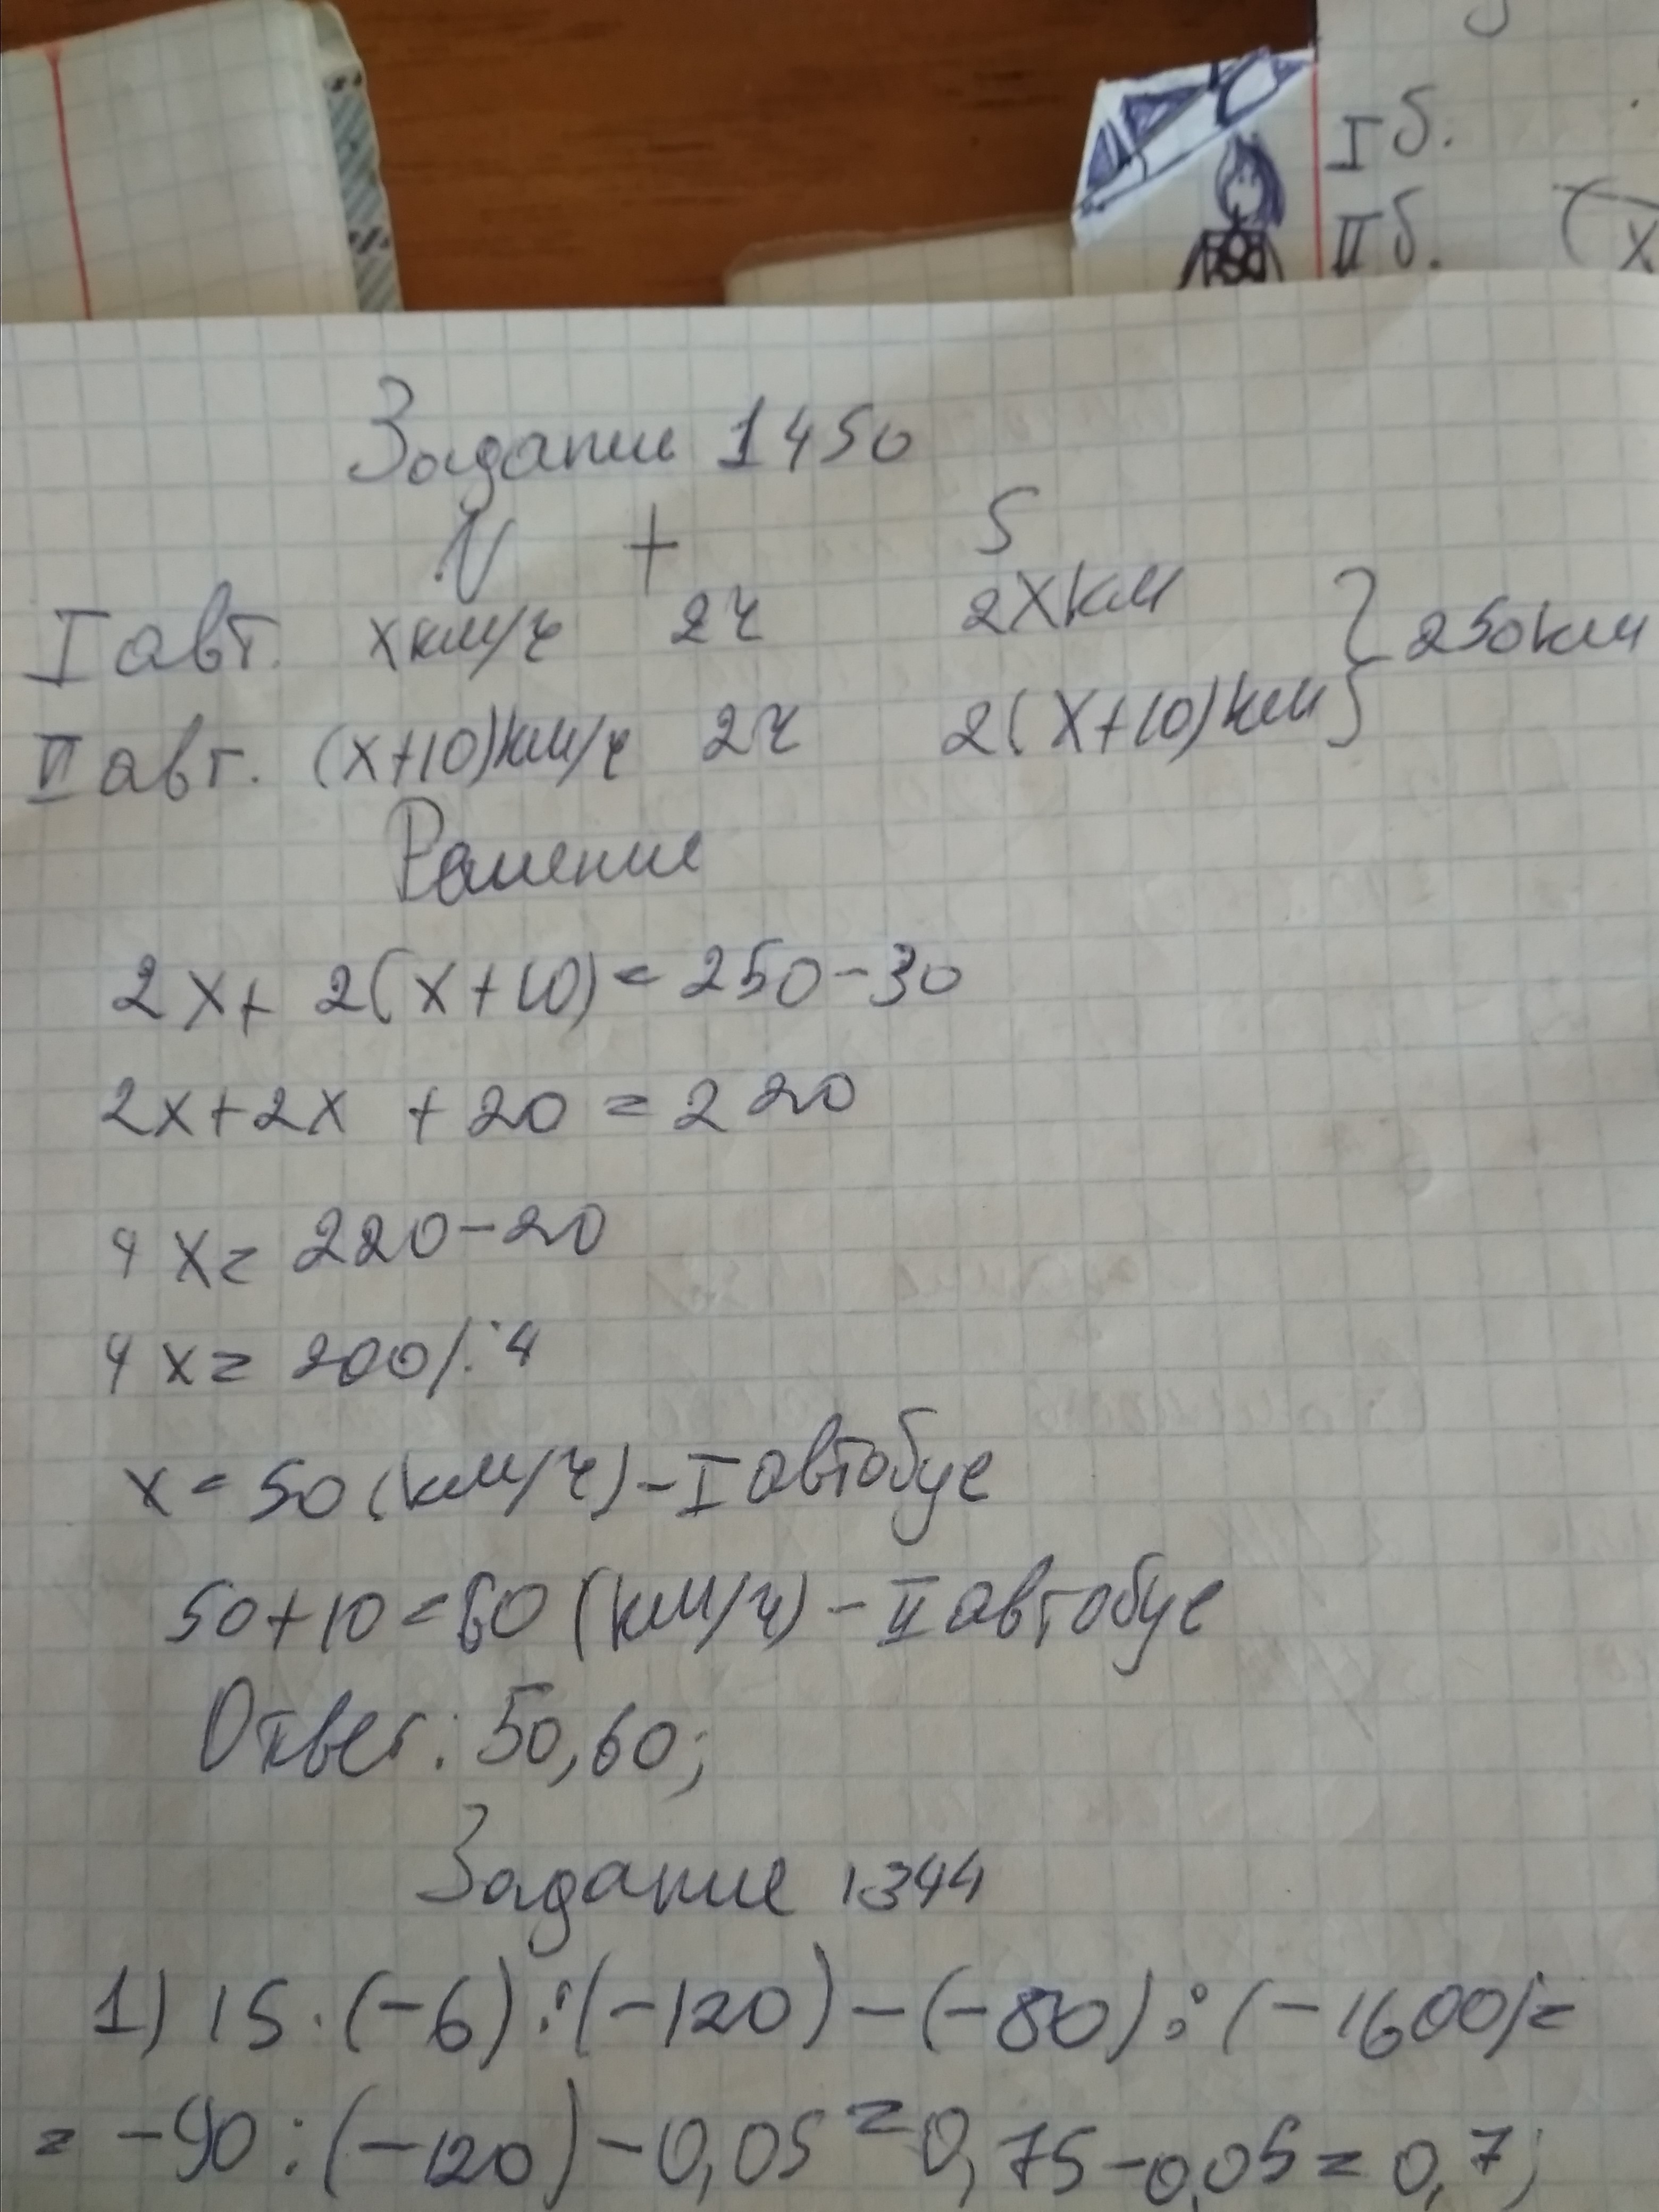 I б.
II б. (x
Задание 1450
V t S
I авт. x км/ч 2ч 2x км } 250км
II авт. (x+10)км/ч 2ч 2(x+10)км
Решение
2x+ 2(x+10)=250-30
2x+2x +20=220
4x=220-20
4x=200/:4
x=50(км/ч)-I автобус
50+10=60(км/ч)-II автобус
Ответ: 50,60;
Задание 1344
1) 15·(-6):(-120)-(-80):(-1600)=
=-90:(-120)-0,05=0,75-0,05=0,7;